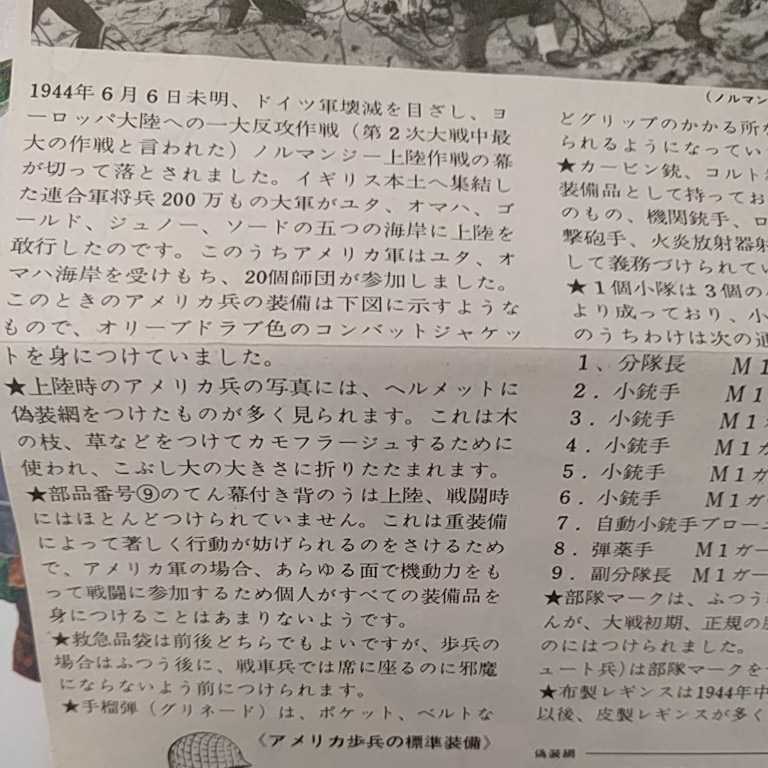 1944年6月6日未明、ドイツ軍壊滅を目ざし、ヨ
ーロッパ大陸への一大反攻作戦(第2次大戦中最
大の作戦と言われた)ノルマンジー上陸作戦の幕
が切って落とされました。イギリス本土へ集結し
た連合軍将兵200万もの大軍がユタ、オマハ、ゴ
ールド、ジュノー、ソードの五つの海岸に上陸を
敢行したのです。このうちアメリカ軍はユタ、オ
マハ海岸を受けもち、20個師団が参加しました。
このときのアメリカ兵の装備は下図に示すような
もので、オリーブドラブ色のコンバットジャケッ
トを身につけていました。
★上陸時のアメリカ兵の写真には、ヘルメットに
偽装網をつけたものが多く見られます。これは木
の枝、草などをつけてカモフラージュするために
使われ、こぶし大の大きさに折りたたまれます。
★部品番号⑨のてん幕付き背のうは上陸、戦闘時
にはほとんどつけられていません。これは重装備
によって著しく行動が妨げられるのをさけるため
で、アメリカ軍の場合、あらゆる面で機動力をも
って戦闘に参加するため個人がすべての装備品を
身につけることはあまりないようです。
★救急品袋は前後どちらでもよいですが、歩兵の
場合はふつう後に、戦車兵では席に座るのに邪魔
にならないよう前につけられます。
★手榴弾(グリネード)は、ポケット、ベルトな
(ノルマン
どグリップのかかる所が
られるようになってい
★カービン銃、コルト
装備品として持ってお
のもの、機関銃手、ロ
撃砲手、火炎放射器射
して義務づけられてい
★1個小隊は3個の
より成っており、小
のうちわけは次の通
1、分隊長 M1
2．小銃手 M1
3．小銃手 M1ガ
4．小銃手 M1ガ
5．小銃手 M1ガ
6．小銃手 M1ガ
7．自動小銃手ブローニ
8．弾薬手 M1ガー
9．副分隊長 M1ガー
★部隊マークは、ふつう
んが、大戦初期、正規の
のにはつけられました。
ュート兵)は部隊マークを
★布製レギンスは1944年中
以後、皮製レギンスが多く
《アメリカ歩兵の標準装備》
偽装網